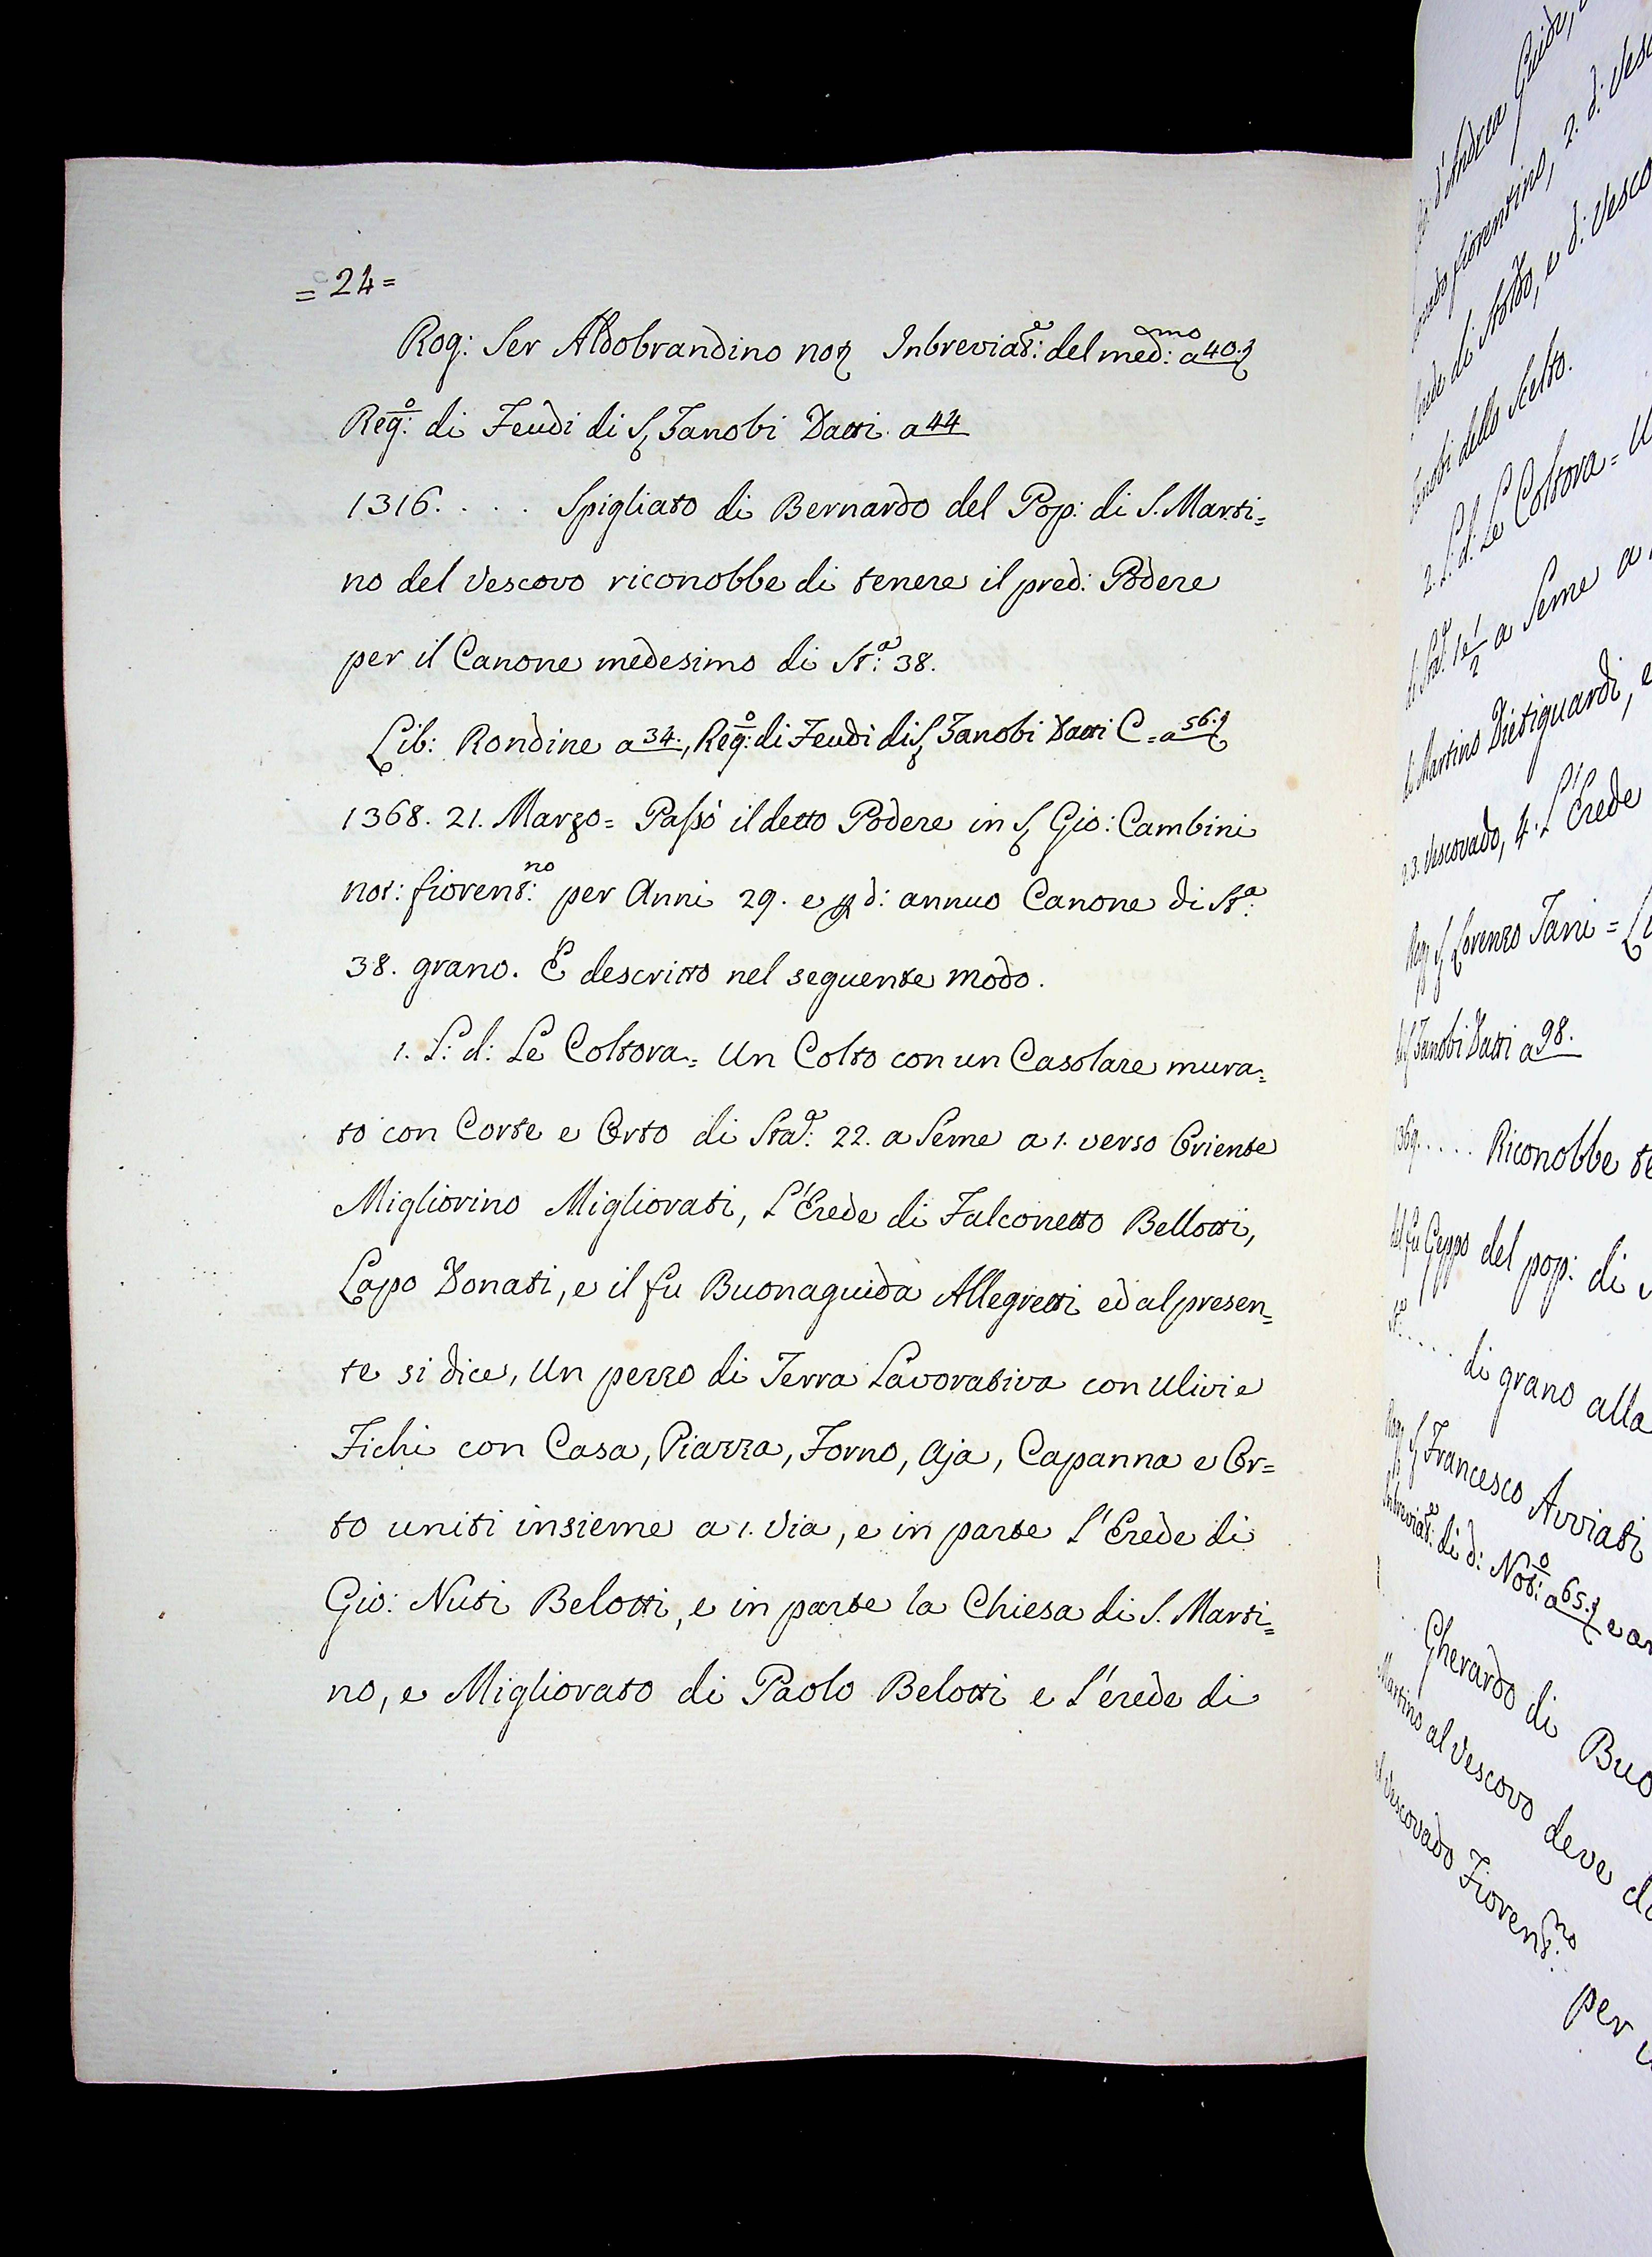 = 24 =
Rog: Ser Aldobrandino not Inbreviat:e del med:mo a 40.
Reg:o di Feudi di S. Zanobi Datti a 44
1316. . . . Spigliato di Bernardo del Pop: di S. Marti=
no del Vescovo riconobbe di tenere il pred: Podere
per il Canone medesimo di St:a 38.
Lib: Rondine a 34., Reg:o di Feudi di S. Zanobi Datti C = a 56.
1368. 21. Marzo = Passò il detto Podere in S. Gio: Cambini
not: fiorent:no per Anni 29. e p d: annuo Canone di St:a
38. grano. E descritto nel seguente modo.
1. L: d: Le Coltora = Un Colto con un Casolare mura=
to con Corte e Orto di Sta:a 22. a Seme a 1. verso Oriente
Migliorino Migliorati, L'Erede di Falconetto Bellotti,
Lapo Donati, e il fu Buonaguida Allegretti ed al presen=
te si dice, Un pezzo di Terra Lavorativa con Ulivi e
Fichi con Casa, Piazza, Forno, Aja, Capanna e Or=
to uniti insieme a 1. Via, e in parte L'Erede di
Gio: Nuti Belotti, e in parte la Chiesa di S. Marti=
no, e Migliorato di Paolo Belotti e L'erede di
d'Andrea Guido,
fiorentino, 2. d: Vesc
di Stoldo, e d: Vesco
Zanobi dello Scelto.
2. L: d: Le Coltora = U
di Sta:a 1 e 1/2 a Seme a
di Martino Dietiguardi, e
a 3. Vescovado, 4. L'Erede
Rog: S. Lorenzo Tani = Li
di S. Zanobi Datti a 98.
1369. . . . . Riconobbe te
del fu Geppo del pop: di
St:a . . . . . di grano alla
Rog: S. Francesco Avviati
Inbreviat:e di d: Not:o a 65. e a
Gherardo di Buo
Martino al Vescovo deve d
Vescovado Fiorent:no
per